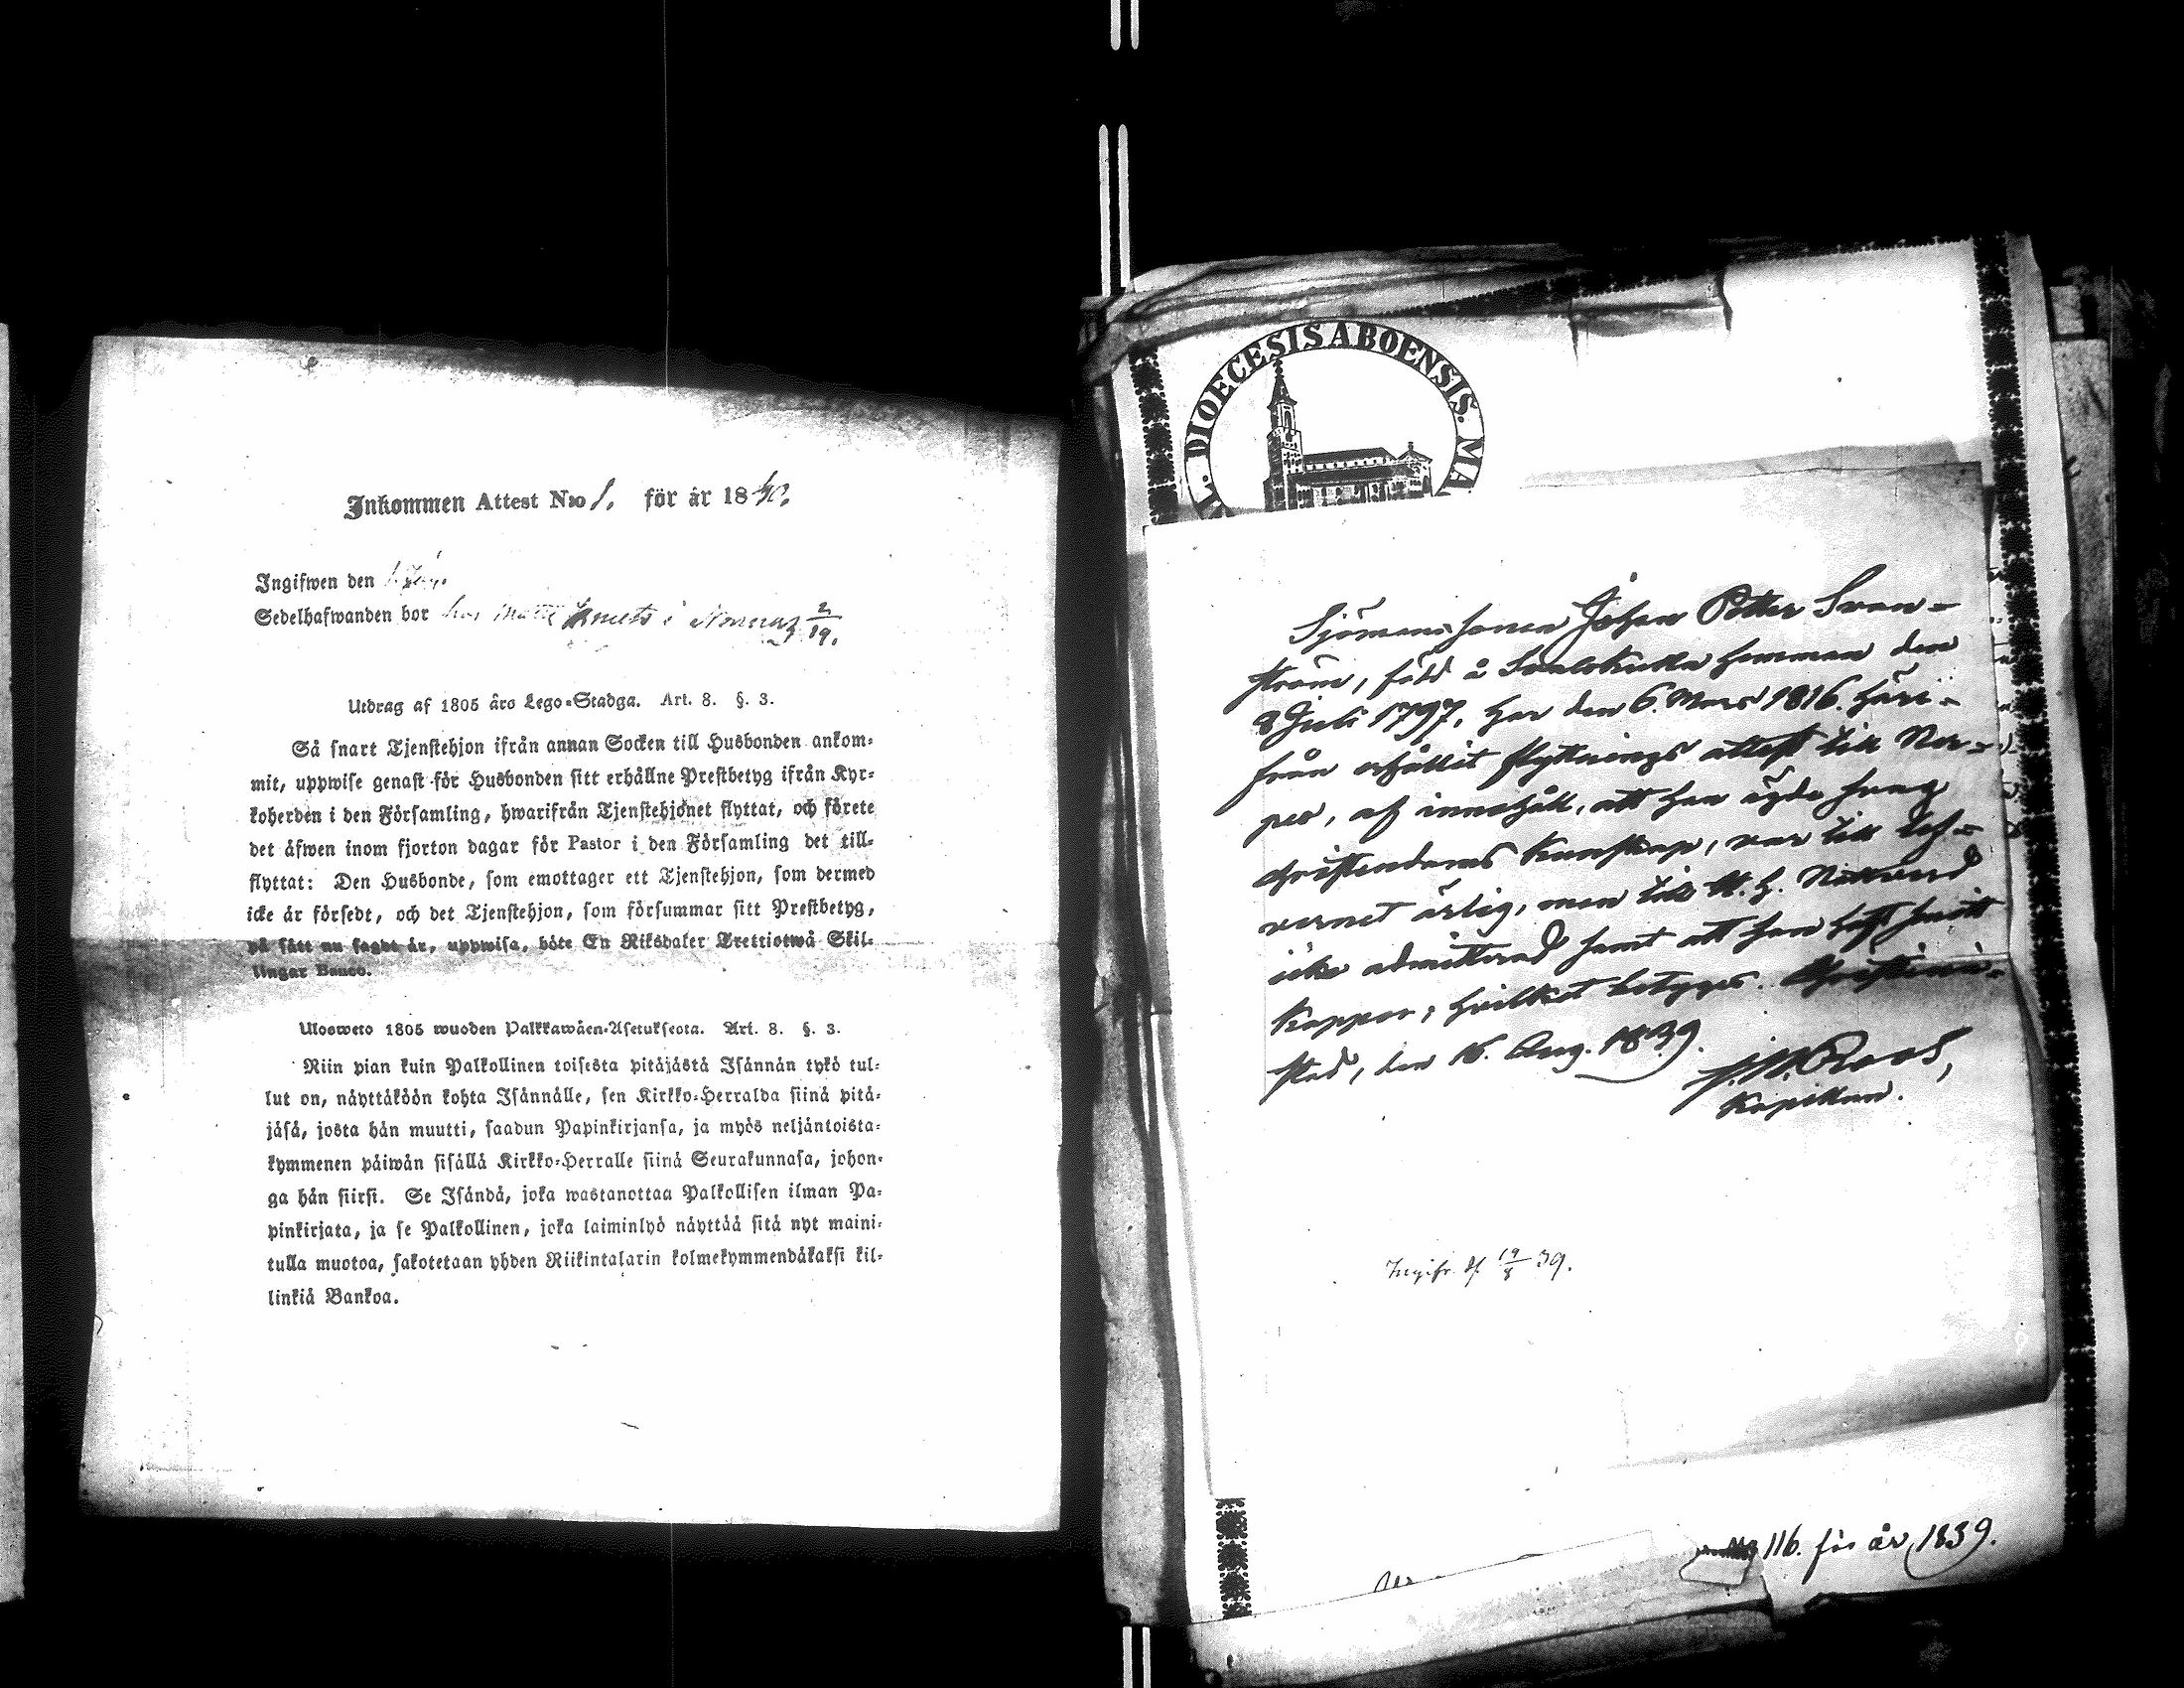 Inkommen Attest N:o 1. för år 1840.
Ingifwen den
Sedelhafwanden bor hos Matts i 2/19.
Utdrag af 1805 års Lego-Stadga. Art. 8. §. 3.
Så snart Tjenstehjon ifrån annan Socken till Husbonden ankom-
mit, uppwise genast för Husbonden sitt erhållne Prestbetyg ifrån Kyr-
koherden i den Församling, hwarifrån Tjenstehjonet flyttat, och förete
det äfwen inom fjorton dagar för Pastor i den Församling det till-
flyttat: Den Husbonde, som emottager ett Tjenstehjon, som dermed
icke är försedt, och det Tjenstehjon, som försummar sitt Prestbetyg,
på sätt nu sagdt är, uppwisa, böte En Riksdaler Trettiotwå Skil-
lingar Banco.
Ulosweto 1805 wuoden Palkkawäen-Asetuksesta. Art. 8. §. 3.
Niin pian kuin Palkollinen toisesta pitäjästä Isännän tykö tul-
lut on, näyttäköön kohta Isännälle, sen Kirkko-Herralda siinä pitä-
jäsä, josta hän muutti, saadun Papinkirjansa, ja myös neljäntoista-
kymmenen päiwän sisällä Kirkko-Herralle siinä Seurakunnasa, johon-
ga hän siirsi. Se Isändä, joka wastanottaa Palkollisen ilman Pa-
pinkirjata, ja se Palkollinen, joka laiminlyö näyttää sitä nyt maini-
tulla muotoa, sakotetaan yhden Riikintalarin kolmekymmendäkaksi kil-
linkiä Bankoa.
DIOECESIS ABOENSIS. MA
Sjömans sonen Johan Petter Svan-
ström, född å hemman den
8 Juli 1797, har den 6. Mars 1816. häri-
från erhållit flyttnings attest till Ner-
pes, af innehåll, att han ägde svag
Christendoms kunskap, var till lef-
vernet ärlig, men till H. H. Nattvard
icke admitterad samt att han haft
Koppor; hvilket betyges. Christine-
stad, den 16. Aug. 1839.
Kapellan.
Ingifv. d. 19/8 39.
116. för år 1839.